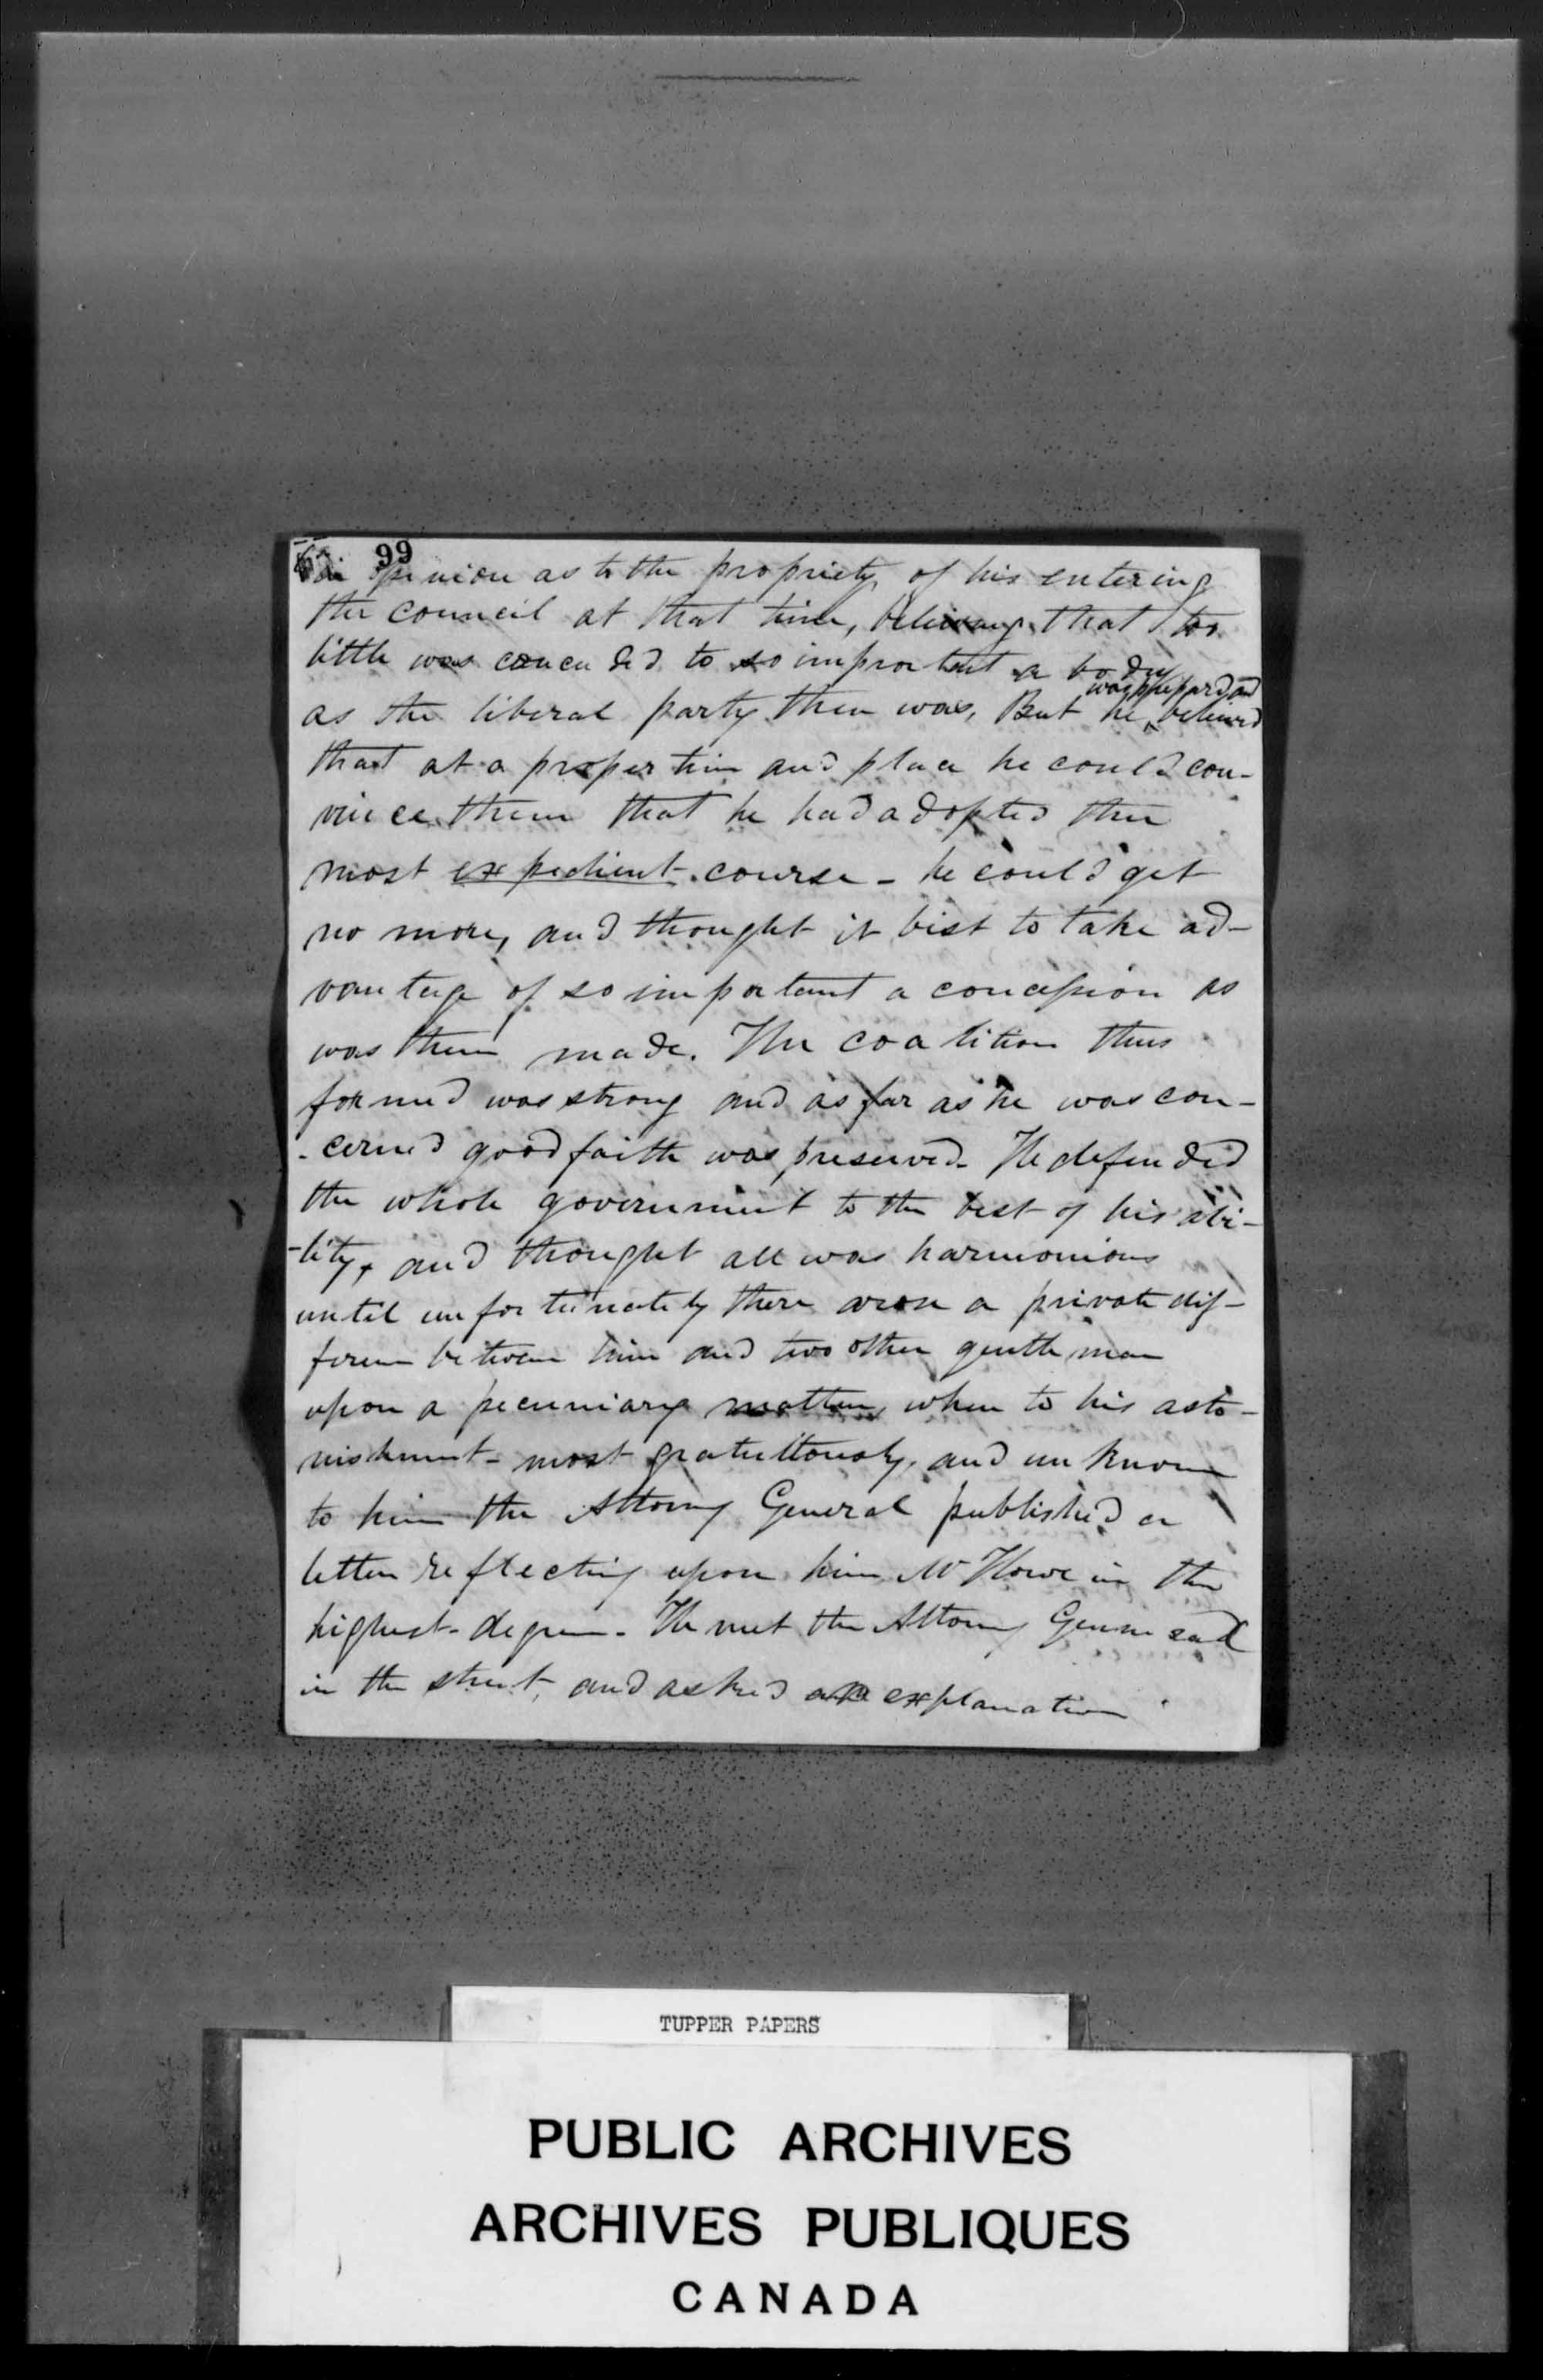 99
in opinion as to the propriety of his entering
the council at that time, believing that too
little was conceded to so important a body
as the liberal party then was, But he was prepared and believed
that at a proper time and place he could con-
vince them that he had adopted the
most expedient course - he could get
no more, and thought it best to take ad-
vantage of so important a concession as
was then made. The coalition thus
formed was strong and as far as he was con-
-cerned good faith was preserved. He defended
the whole government to the best of his abi-
-lity, and thought all was harmonious
until unfortunately there arose a private dif-
ference between him and two other gentlemen
upon a pecuniary matter, when to his asto-
nishment - most gratuitously, and unknown
to him the Attorney General published a
letter reflecting upon him Mr Howe in the
highest degree. He met the Attorney General
in the street, and asked an explanation
TUPPER PAPERS
PUBLIC ARCHIVES
ARCHIVES PUBLIQUES
CANADA